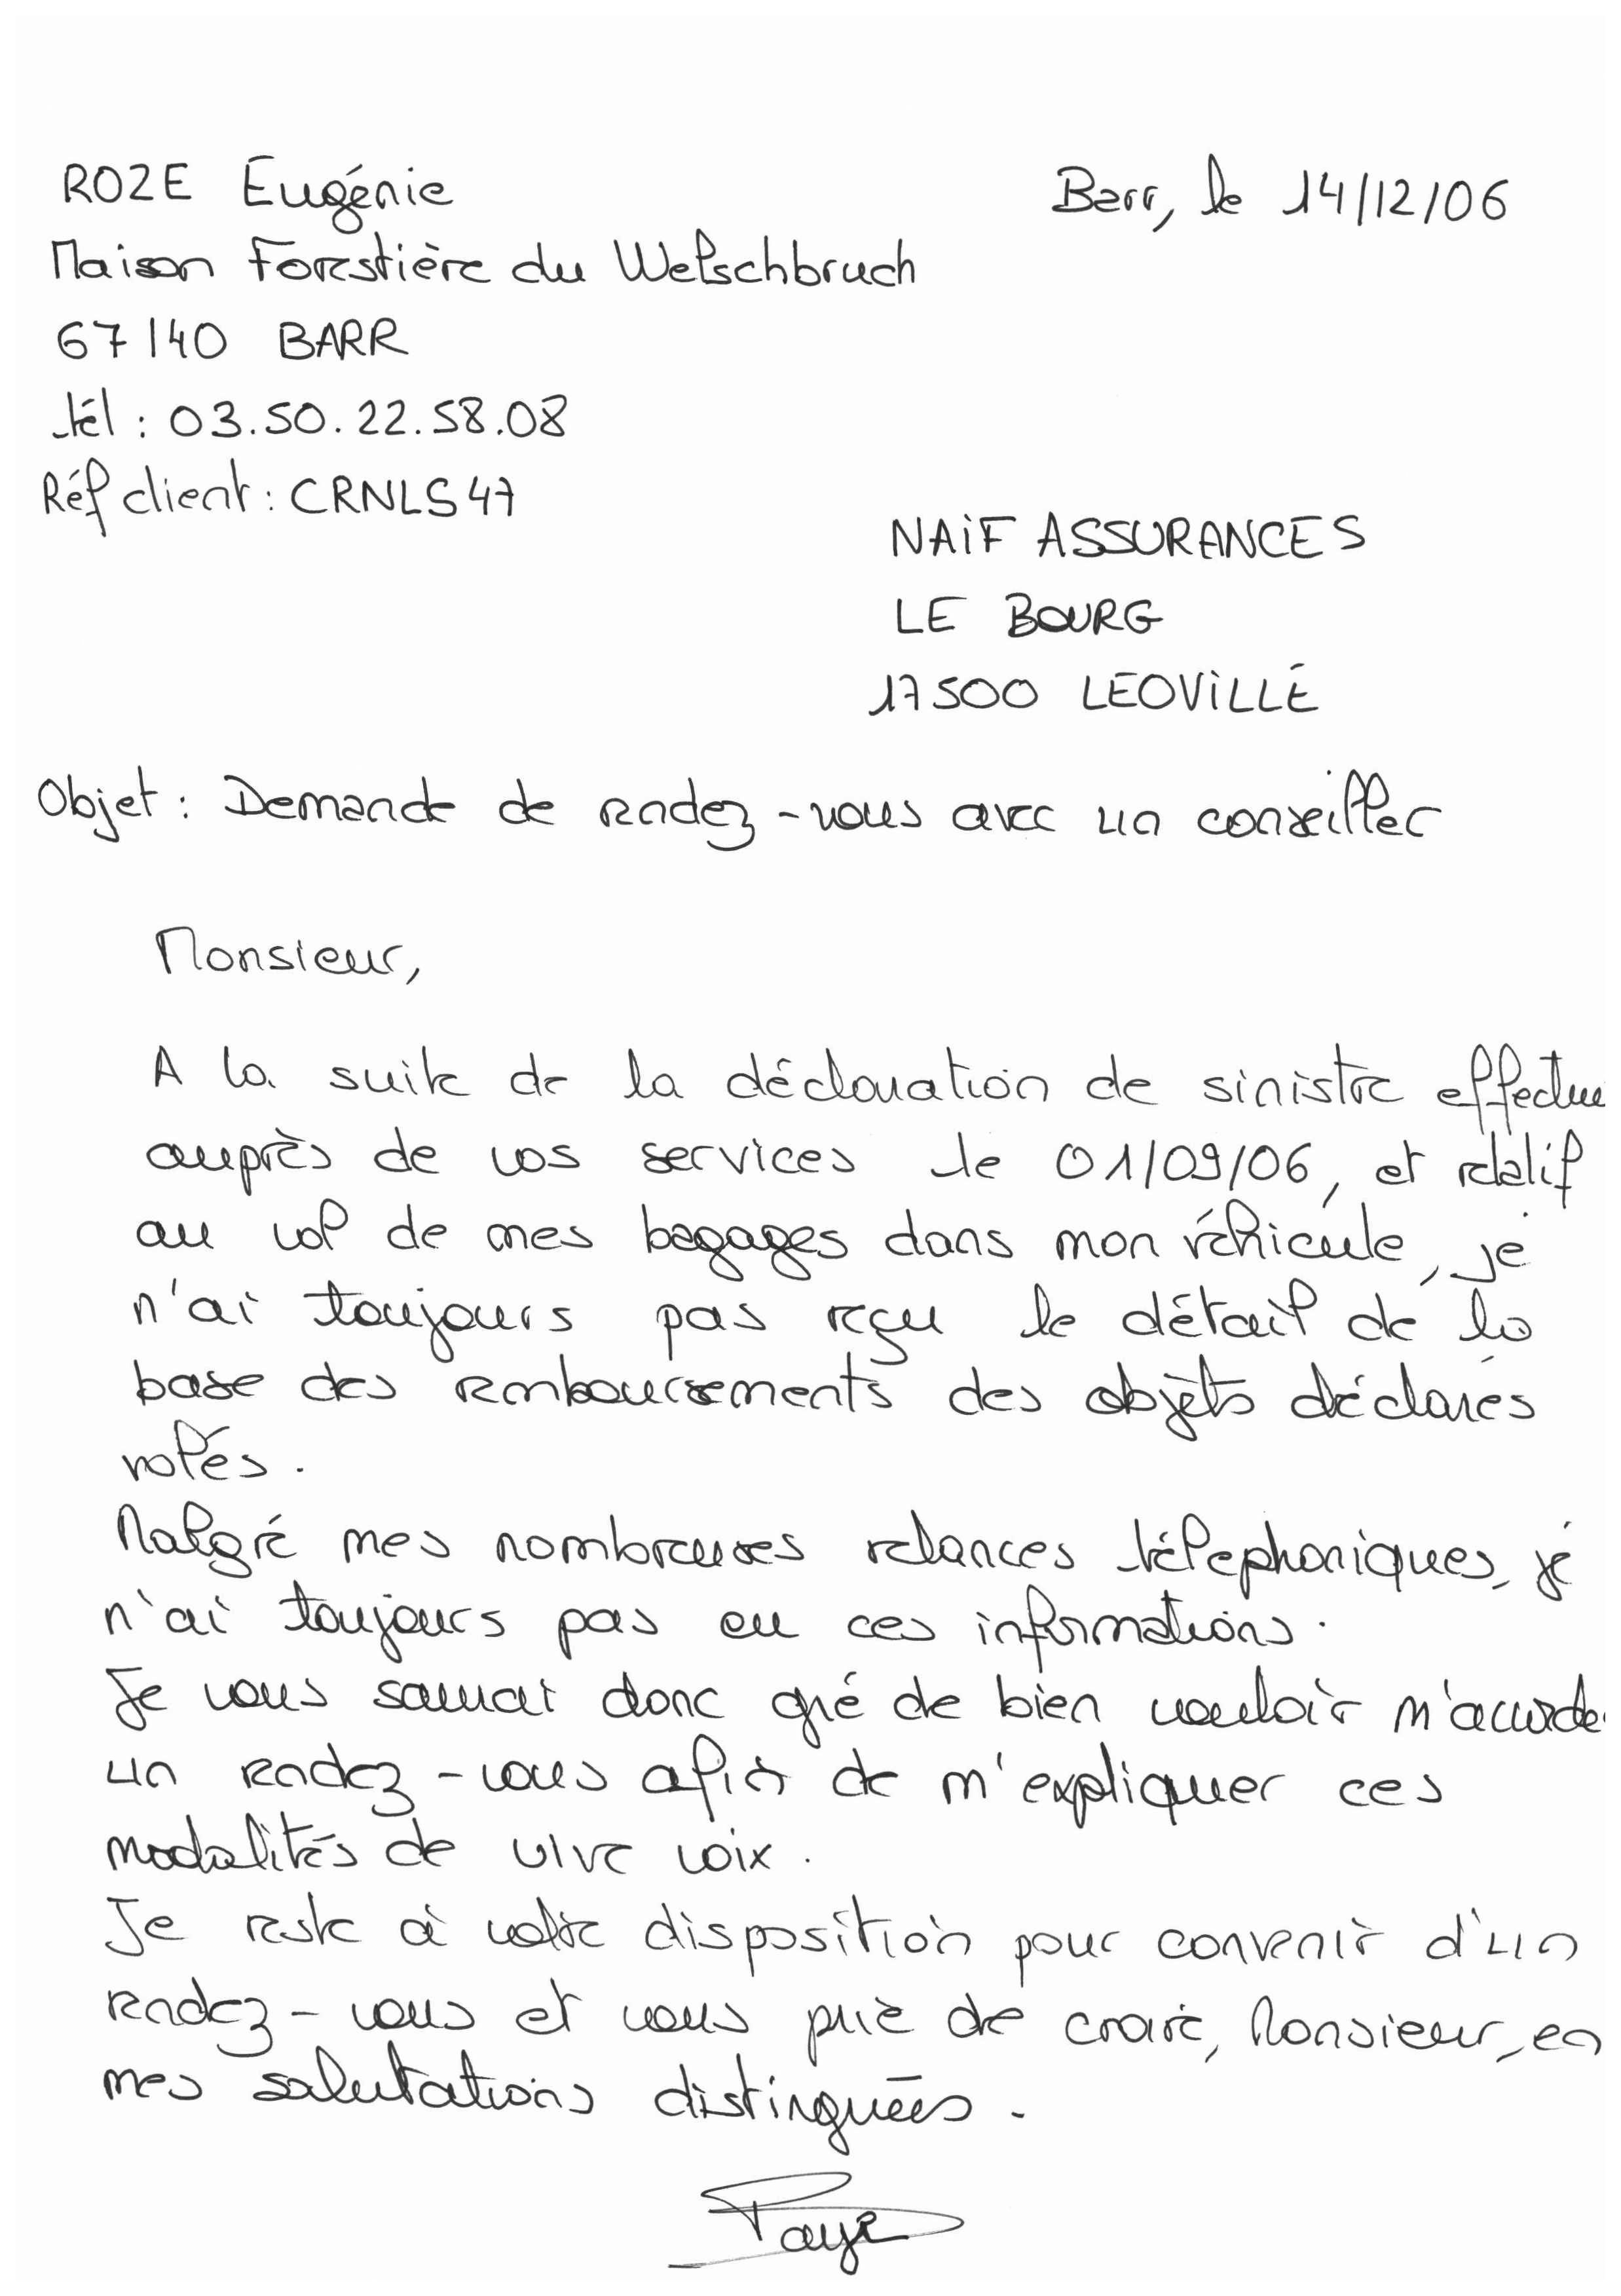 ROZE Eugénie
Barr, le 14/12/06
Maison Forestière du Welschbruch
67140 BARR
tél : 03.50.22.58.08
Réf client : CRNLS47
NAIF ASSURANCES
LE BOURG
17500 LEOVILLE
Objet : Demande de rendez-vous avec un conseiller
Monsieur,
A la suite de la déclaration de sinistre effectue
auprès de vos services le 01/09/06, et relatif
au vol de mes bagages dans mon véhicule, je
n'ai toujours pas reçu le détail de la
base des remboursements des objets déclarés
volés.
Malgré mes nombreuses relances téléphoniques, je
n'ai toujours pas eu ces informations.
Je vous saurai donc gré de bien vouloir m'accorde
un rendez-vous afin de m'expliquer ces
modalités de vive voix.
Je reste à votre disposition pour convenir d'un
rendez-vous et vous prie de croire, Monsieur, en
mes salutations distinguées.